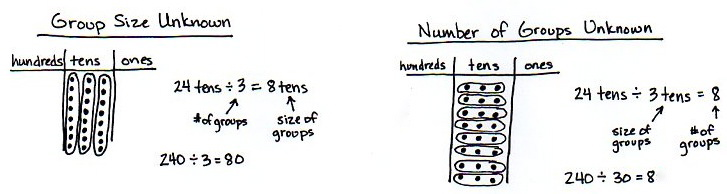 Group Size Unknown
hundreds tens ones
24 tens ÷ 3 = 8 tens
# of groups
size of
groups
240 ÷ 3 = 80
Number of Groups Unknown
hundreds tens ones
24 tens ÷ 3 tens = 8
size of
groups
# of
groups
240 ÷ 30 = 8